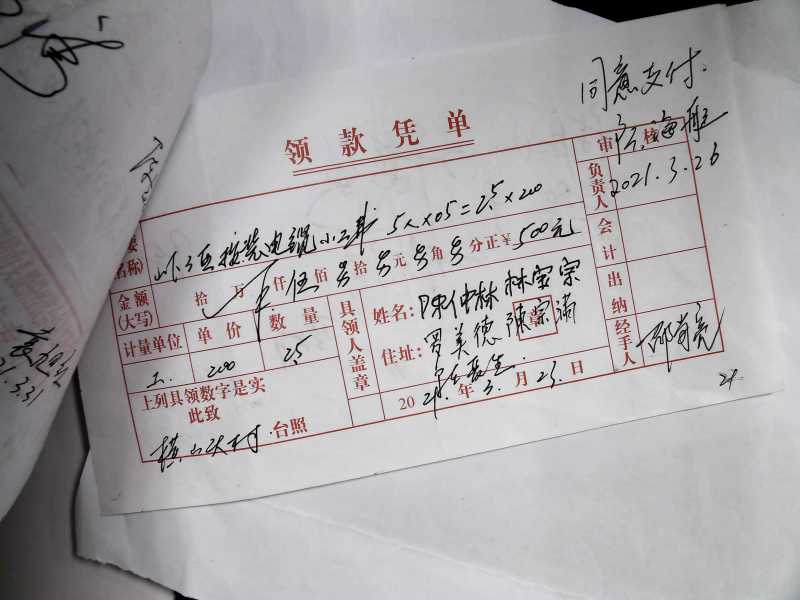 同意支付.
领款凭单
审核
2021.3.26
负责人
名称)
按装电缆小工
5人×05=2.5×200
金额
(大写)
拾万仟伍佰另拾另元另角另分正¥500元
会计
计量单位 单价 数量
工. 200 2.5
具领人盖章
姓名:陈仲林 林宝宗
住址:罗美德 陈宗满
出纳
经手人
上列具领数字是实
此致
村 台照
2021年3.月23.日
3.31